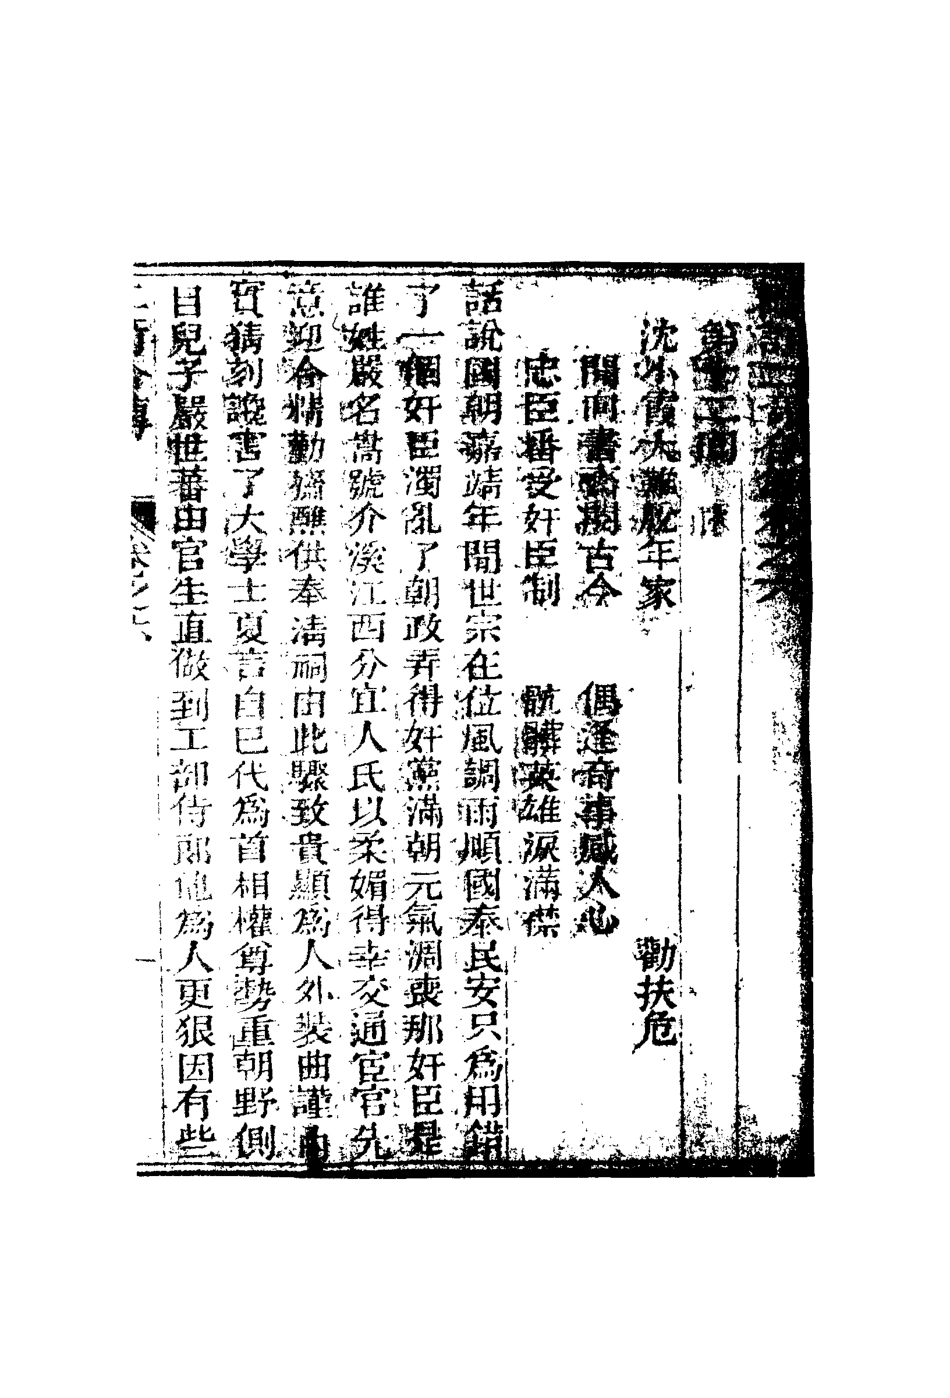 二奇合傳卷之六
第十二回
沈小霞大難脫年家 勸扶危
閒向書齋閱古今 偶逢奇事感人心
忠臣番受奸臣制 骯髒英雄淚滿襟
話說國朝嘉靖年間世宗在位風調雨順國泰民安只爲用錯
了一個奸臣濁亂了朝政弄得奸黨滿朝元氣凋喪那奸臣是
誰姓嚴名嵩號介溪江西分宜人氏以柔媚得幸交通宦官先
意迎合精勤齋醮供奉清祠由此驟致貴顯爲人外裝曲謹內
實猜刻讒害了大學士夏言自已代爲首相權尊勢重朝野側
目兒子嚴世蕃由官生直做到工部侍郎他爲人更狠因有些
二奇合傳 卷之六 一